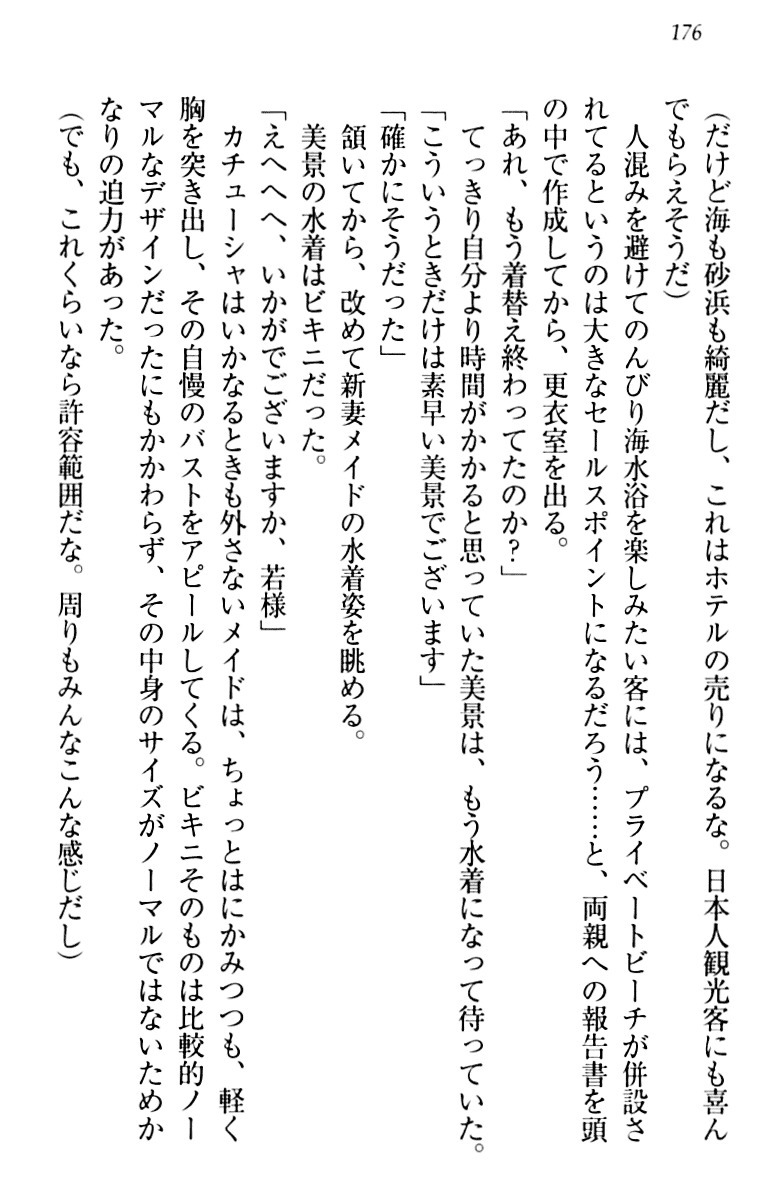 176
（だけど海も砂浜も綺麗だし、これはホテルの売りになるな。日本人観光客にも喜ん
でもらえそうだ）
　人混みを避けてのんびり海水浴を楽しみたい客には、プライベートビーチが併設さ
れてるというのは大きなセールスポイントになるだろう……と、両親への報告書を頭
の中で作成してから、更衣室を出る。
「あれ、もう着替え終わってたのか？」
　てっきり自分より時間がかかると思っていた美景は、もう水着になって待っていた。
「こういうときだけは素早い美景でございます」
「確かにそうだった」
　頷いてから、改めて新妻メイドの水着姿を眺める。
　美景の水着はビキニだった。
「えへへへ、いかがでございますか、若様」
　カチューシャはいかなるときも外さないメイドは、ちょっとはにかみつつも、軽く
胸を突き出し、その自慢のバストをアピールしてくる。ビキニそのものは比較的ノー
マルなデザインだったにもかかわらず、その中身のサイズがノーマルではないためか
なりの迫力があった。
（でも、これくらいなら許容範囲だな。周りもみんなこんな感じだし）